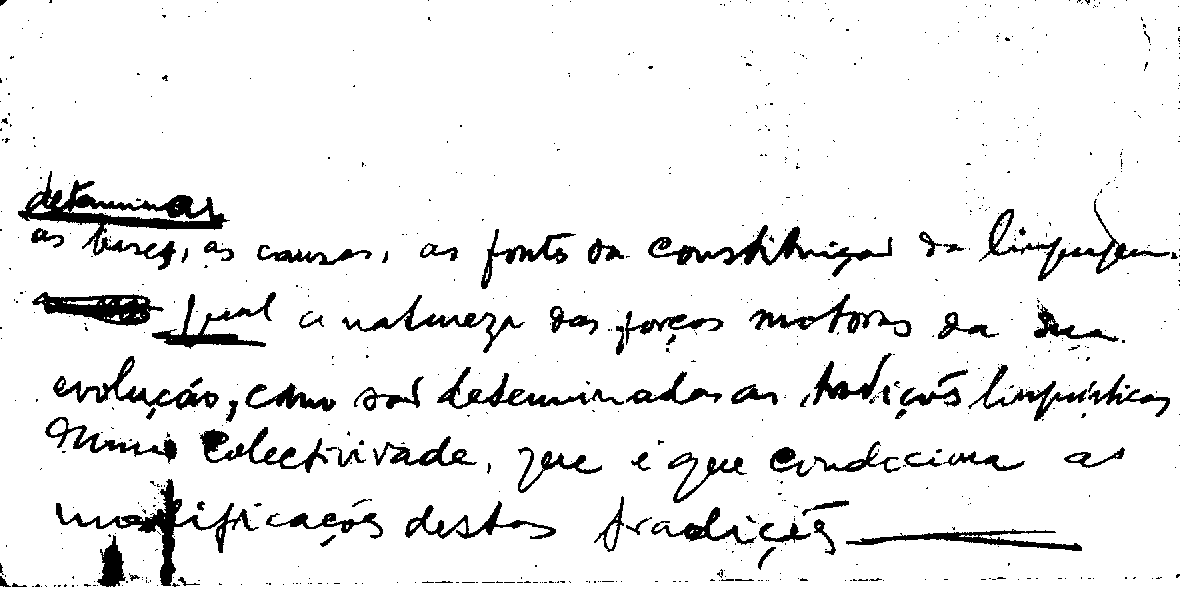 determinar
as bases, as causas, as fontes da constituição da linguagem.
qual a natureza das forças motoras da sua
evolução, como são determinadas as tradições linguísticas
numa colectividade, que é que condiciona as
modificações destas tradições